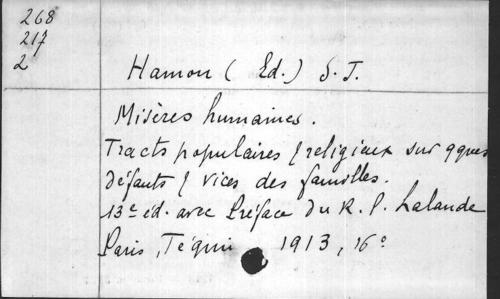 268
217
2
Hamon (Ed.) S.J.
Misères humaines.
Tracts populaires & religieux sur qques
défauts & vices des familles.
13e éd. avec Préface du R. P. Lalande
Paris, Téqui 1913, 16°